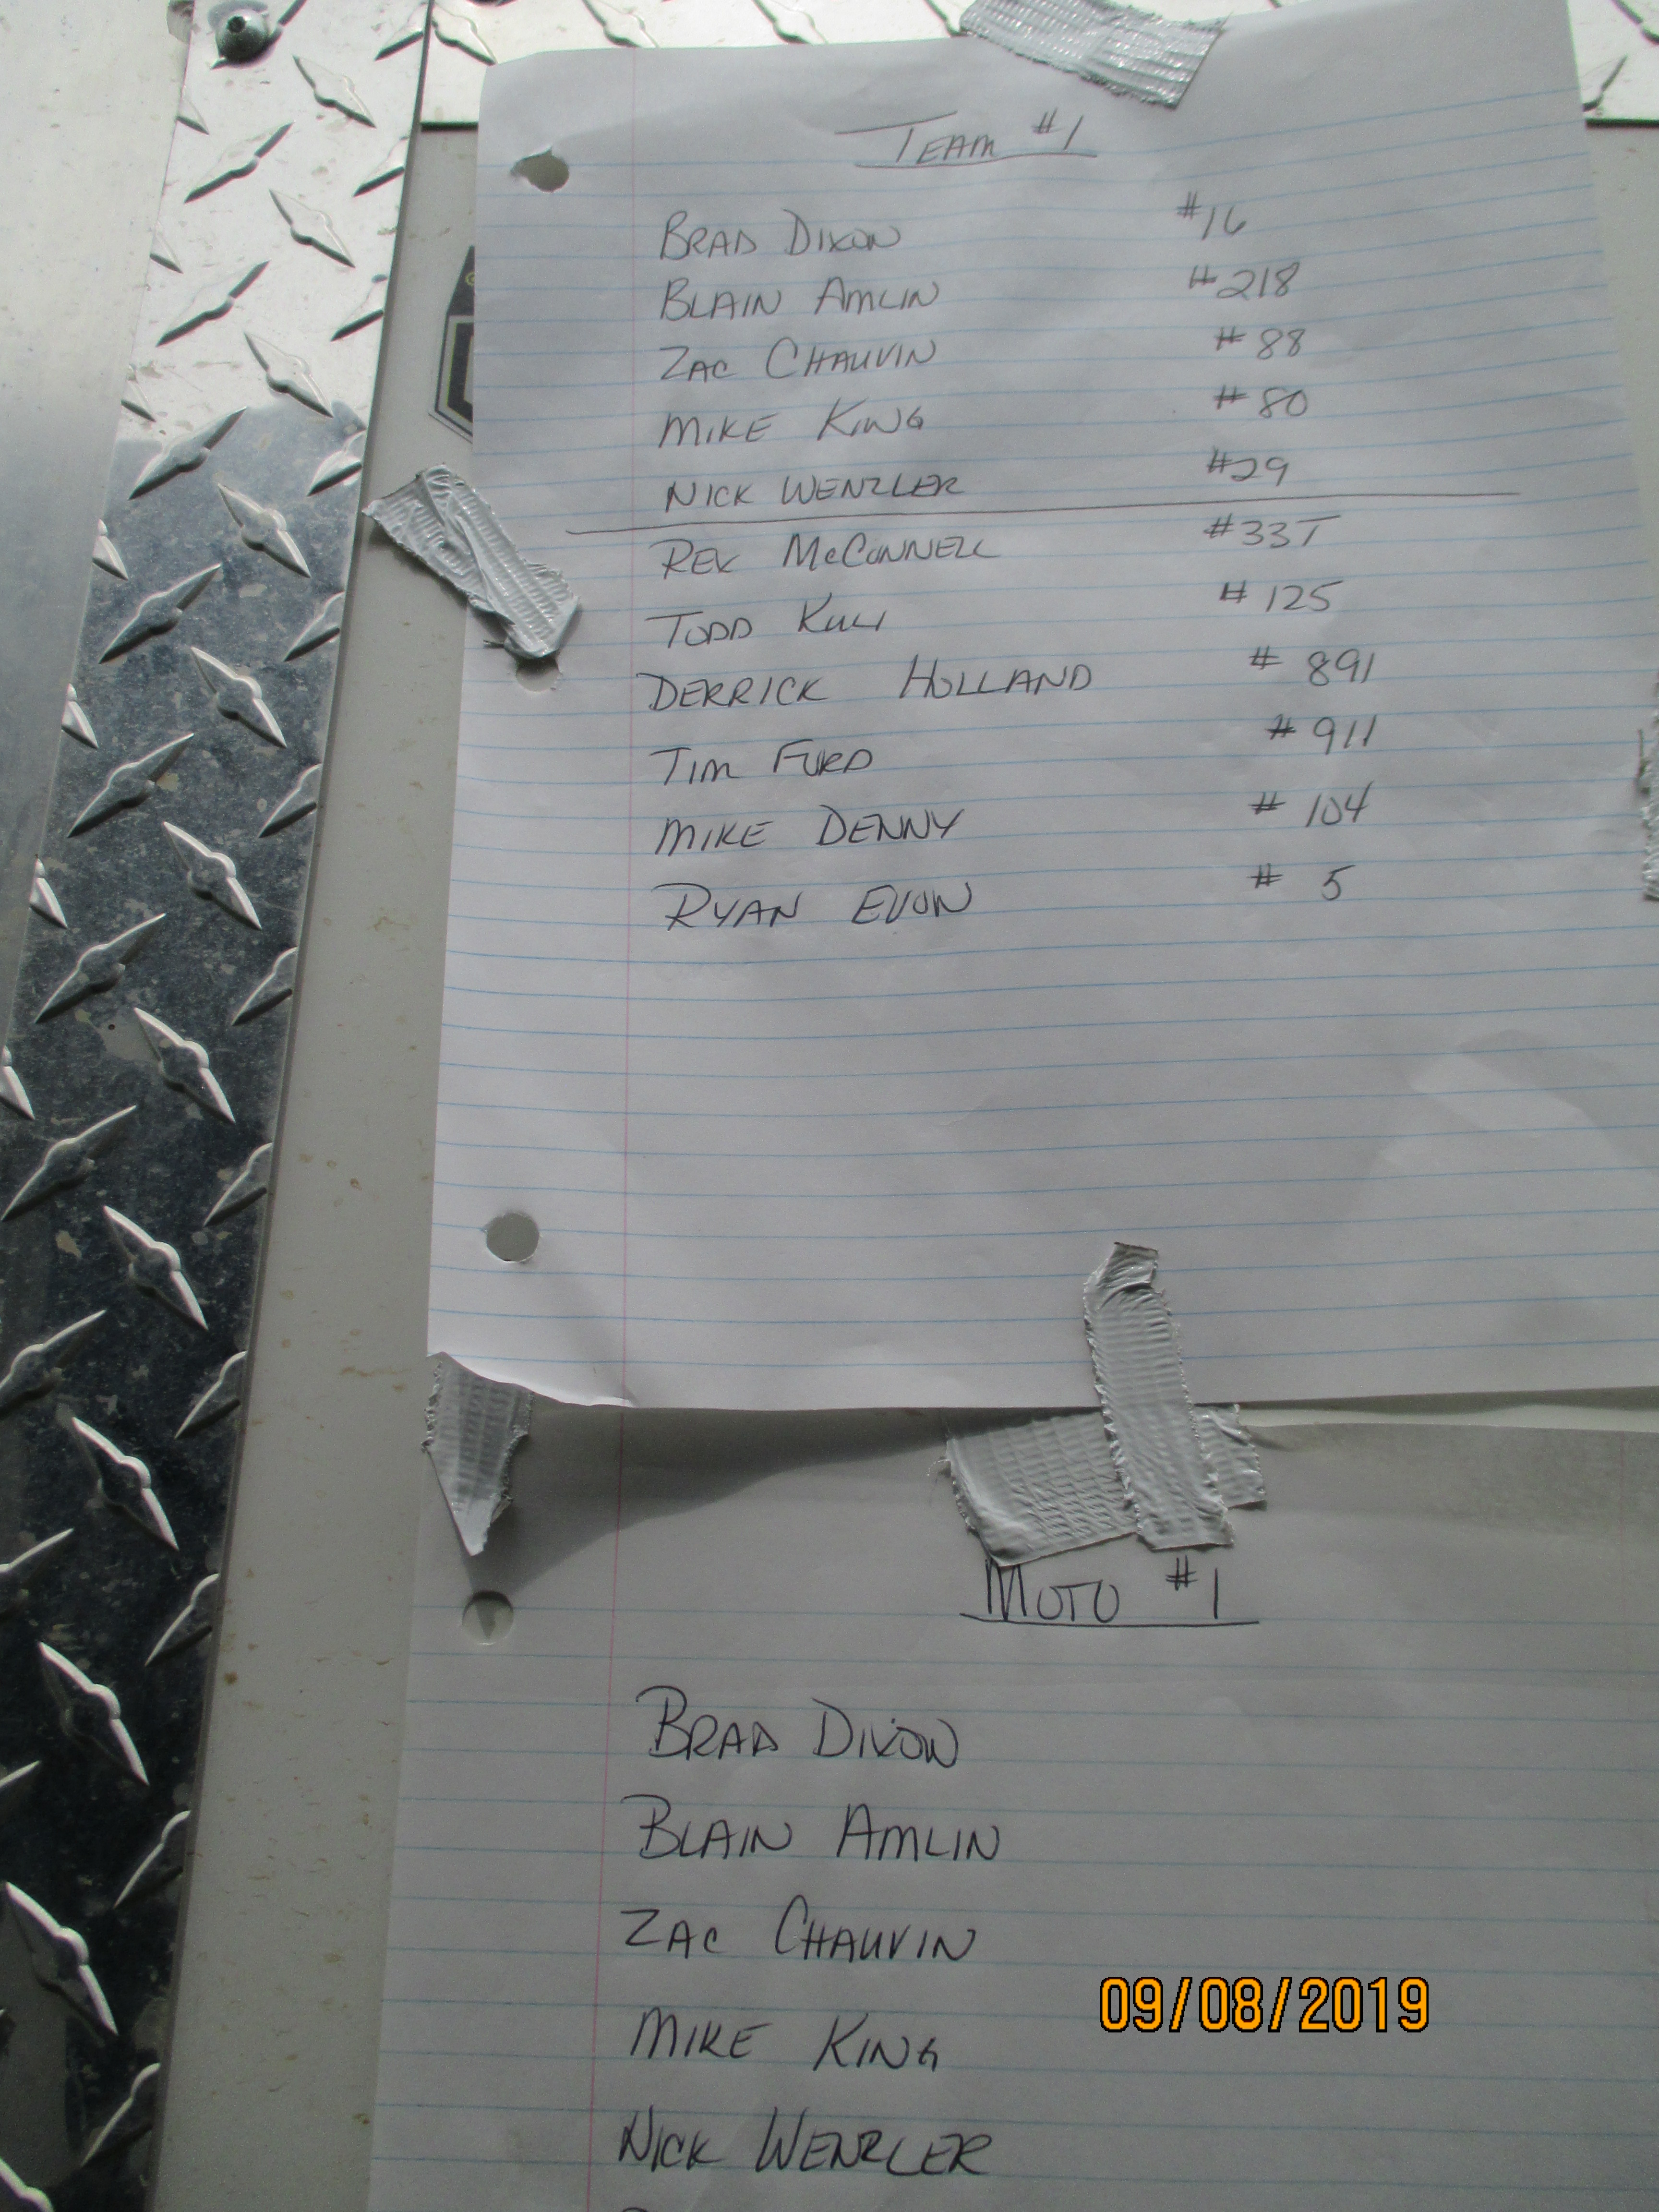 TEAM #1
BRAD DIXON #16
BLAIN AMLIN #218
ZAC CHAUVIN #88
MIKE KING #80
NICK WENZLER #29
REX McCONNELL #33T
TODD #125
DERRICK HOLLAND #891
TIM FORD #911
MIKE DENNY #104
RYAN EVON #5
MOTO #1
BRAD DIXON
BLAIN AMLIN
ZAC CHAUVIN
MIKE KING
NICK WENZLER
09/08/2019